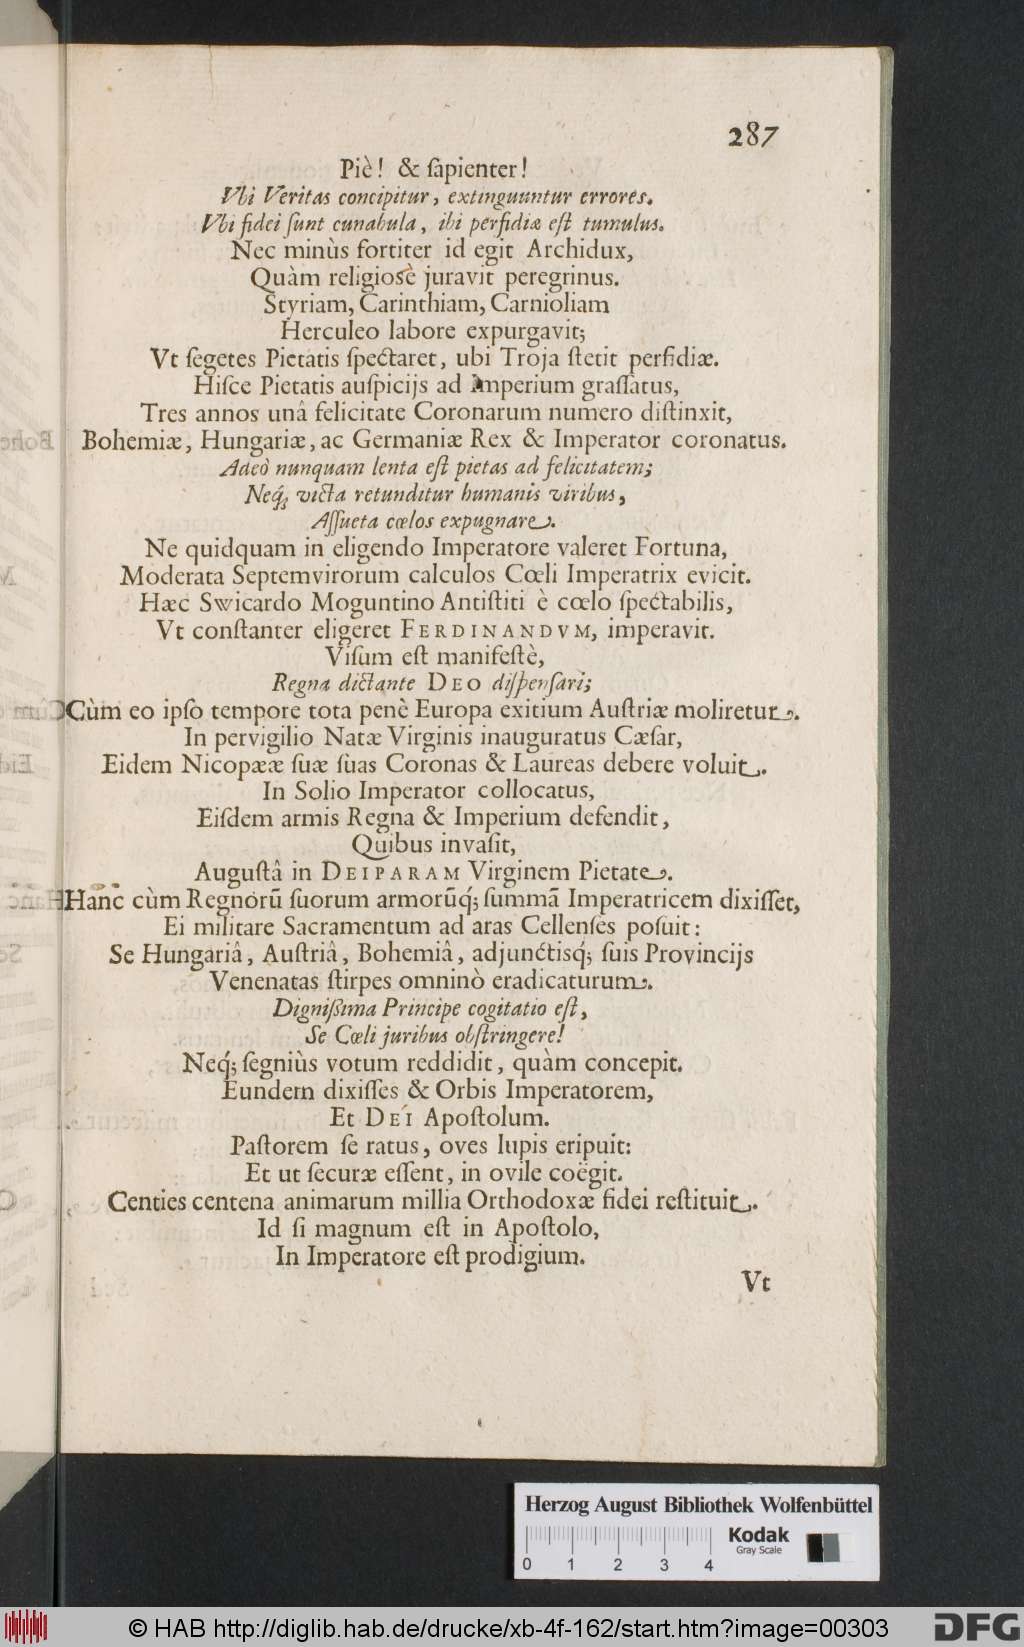 287
Piè! & ſapienter!
Vbi Veritas concipitur, extinguuntur errores.
Vbi fidei ſunt cunabula, ibi perfidiæ eſt tumulus.
Nec minùs fortiter id egit Archidux,
Quàm religiosè juravit peregrinus.
Styriam, Carinthiam, Carnioliam
Herculeo labore expurgavit;
Vt ſegetes Pietatis ſpectaret, ubi Troja ſtetit perfidiæ.
Hiſce Pietatis auſpicijs ad Imperium graſſatus,
Tres annos unâ felicitate Coronarum numero diſtinxit,
Bohemiæ, Hungariæ, ac Germaniæ Rex & Imperator coronatus.
Adeò nunquam lenta eſt pietas ad felicitatem;
Neq́; victa retunditur humanis viribus,
Aſſueta cœlos expugnare.
Ne quidquam in eligendo Imperatore valeret Fortuna,
Moderata Septemvirorum calculos Cœli Imperatrix evicit.
Hæc Swicardo Moguntino Antiſtiti è cœlo ſpectabilis,
Vt conſtanter eligeret FERDINANDVM, imperavit.
Viſum eſt manifeſtè,
Regna dictante DEO diſpenſari;
Cùm eo ipſo tempore tota penè Europa exitium Auſtriæ moliretur.
In pervigilio Natæ Virginis inauguratus Cæſar,
Eidem Nicopææ ſuæ ſuas Coronas & Laureas debere voluit.
In Solio Imperator collocatus,
Eiſdem armis Regna & Imperium defendit,
Quibus invaſit,
Auguſtâ in DEIPARAM Virginem Pietate.
Hanc cùm Regnorū ſuorum armorūq́; ſummā Imperatricem dixiſſet,
Ei militare Sacramentum ad aras Cellenſes poſuit:
Se Hungariâ, Auſtriâ, Bohemiâ, adjunctisq́; ſuis Provincijs
Venenatas ſtirpes omninò eradicaturum.
Dignißima Principe cogitatio eſt,
Se Cœli juribus obſtringere!
Neq́; ſegniùs votum reddidit, quàm concepit.
Eundem dixiſſes & Orbis Imperatorem,
Et DEI Apoſtolum.
Paſtorem ſe ratus, oves lupis eripuit:
Et ut ſecuræ eſſent, in ovile coëgit.
Centies centena animarum millia Orthodoxæ fidei reſtituit.
Id ſi magnum eſt in Apoſtolo,
In Imperatore eſt prodigium.
Vt
Herzog August Bibliothek Wolfenbüttel
0 1 2 3 4
Kodak
Gray Scale
© HAB http://diglib.hab.de/drucke/xb-4f-162/start.htm?image=00303
DFG